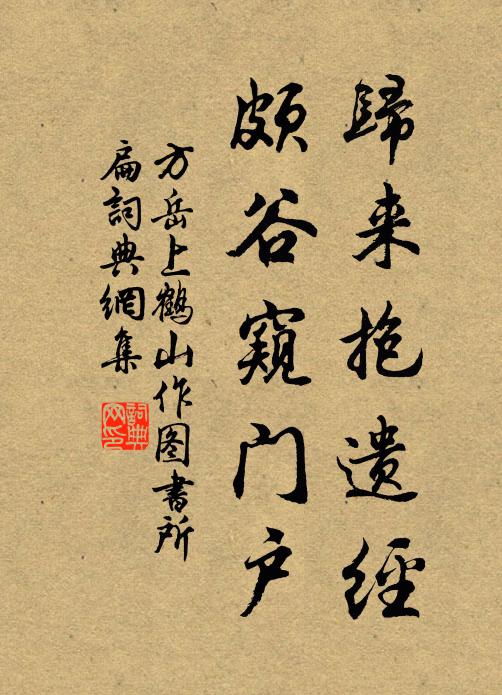 歸来抱遗經
頗谷窺门户
方岳上鶴山作图書所
扁詞典網集
詞典网印